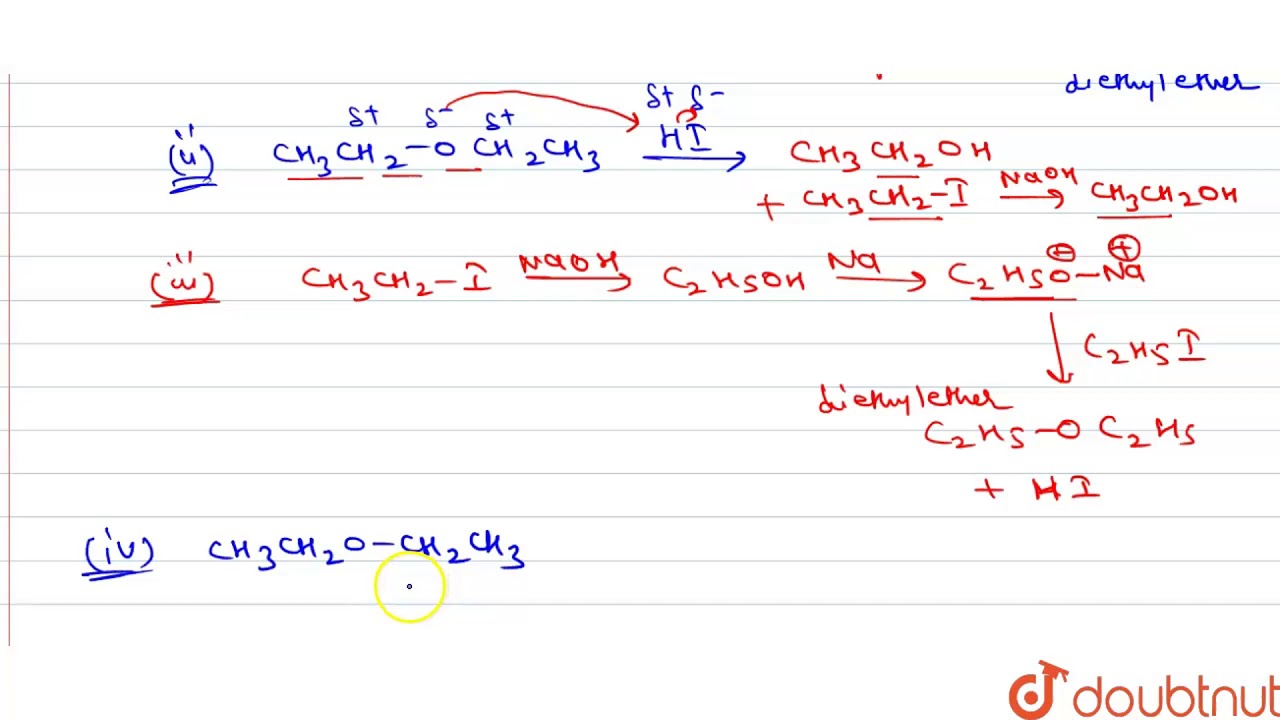 diethylether
δ+ δ- δ+ δ+ δ-
(ii) CH3CH2-O CH2CH3 HI CH3CH2OH
+ CH3CH2-I NaOH CH3CH2OH
(iii) CH3CH2-I NaOH C2H5OH Na C2H5O⊖-Na⊕
C2H5I
diethylether
C2H5-O C2H5
+ HI
(iv) CH3CH2O-CH2CH3
doubtnut